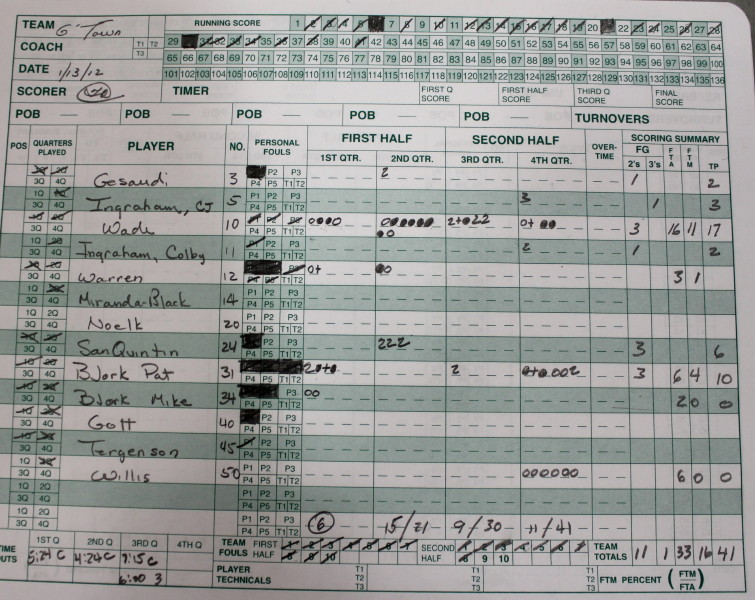 TEAM G' Town RUNNING SCORE 1 2 3 4 5 7 8 9 10 11 12 13 14 15 16 17 18 19 20 22 23 24 25 26 27 28
COACH T1 T2 T3 29 31 32 33 34 35 36 37 38 39 40 41 42 43 44 45 46 47 48 49 50 51 52 53 54 55 56 57 58 59 60 61 62 63 64
65 66 67 68 69 70 71 72 73 74 75 76 77 78 79 80 81 82 83 84 85 86 87 88 89 90 91 92 93 94 95 96 97 98 99 100
DATE 1/13/12 101 102 103 104 105 106 107 108 109 110 111 112 113 114 115 116 117 118 119 120 121 122 123 124 125 126 127 128 129 130 131 132 133 134 135 136
SCORER TIMER FIRST Q SCORE FIRST HALF SCORE THIRD Q SCORE FINAL SCORE
POB — POB — POB — POB — POB — TURNOVERS
POS QUARTERS PLAYED PLAYER NO. PERSONAL FOULS FIRST HALF SECOND HALF OVER-TIME SCORING SUMMARY
1ST QTR. 2ND QTR. 3RD QTR. 4TH QTR. FG 2's 3's FTA FTM TP
3Q 4Q Gesaudi 3 P2 P3 P4 P5 T1 T2 2 1 2
1Q 2Q 3Q 4Q Ingraham, CJ 5 P1 P2 P3 P4 P5 T1 T2 3 1 3
1Q 2Q 3Q 4Q Wade 10 P1 P2 P3 P4 P5 T1 T2 3 16 11 17
1Q 2Q 3Q 4Q Ingraham, Colby 11 P1 P2 P3 P4 P5 T1 T2 2 1 2
3Q 4Q Warren 12 P3 P4 P5 T1 T2 3 1
1Q 2Q 3Q 4Q Miranda-Black 14 P1 P2 P3 P4 P5 T1 T2
1Q 2Q 3Q 4Q Noelk 20 P1 P2 P3 P4 P5 T1 T2
3Q 4Q SanQuintin 24 P2 P3 P4 P5 T1 T2 222 3 6
1Q 2Q 3Q 4Q BJork Pat 31 P4 P5 T1 T2 2 3 6 4 10
3Q 4Q BJork Mike 34 P3 P4 P5 T1 T2 00 2 0 0
1Q 2Q 3Q 4Q Gott 40 P2 P3 P4 P5 T1 T2
1Q 2Q 3Q 4Q Tergenson 45 P1 P2 P3 P4 P5 T1 T2
1Q 2Q 3Q 4Q Willis 50 P1 P2 P3 P4 P5 T1 T2 000000 6 0 0
1Q 2Q 3Q 4Q P1 P2 P3 P4 P5 T1 T2
1Q 2Q 3Q 4Q P1 P2 P3 P4 P5 T1 T2 6 15/21 9/30 11/41
1ST Q 2ND Q 3RD Q 4TH Q TEAM FOULS FIRST HALF 1 2 3 4 5 6 7 8 9 10 SECOND HALF 1 2 3 4 5 6 7 8 9 10 TEAM TOTALS 11 1 33 16 41
5:29 C 4:24 C 7:15 C
6:00 3 PLAYER TECHNICALS T1 T2 T3 T1 T2 T3 T1 T2 T3 T1 T2 T3 FTM PERCENT (FTM FTA)